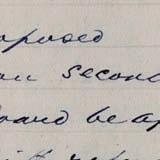 oposed
on secon
Board be ap